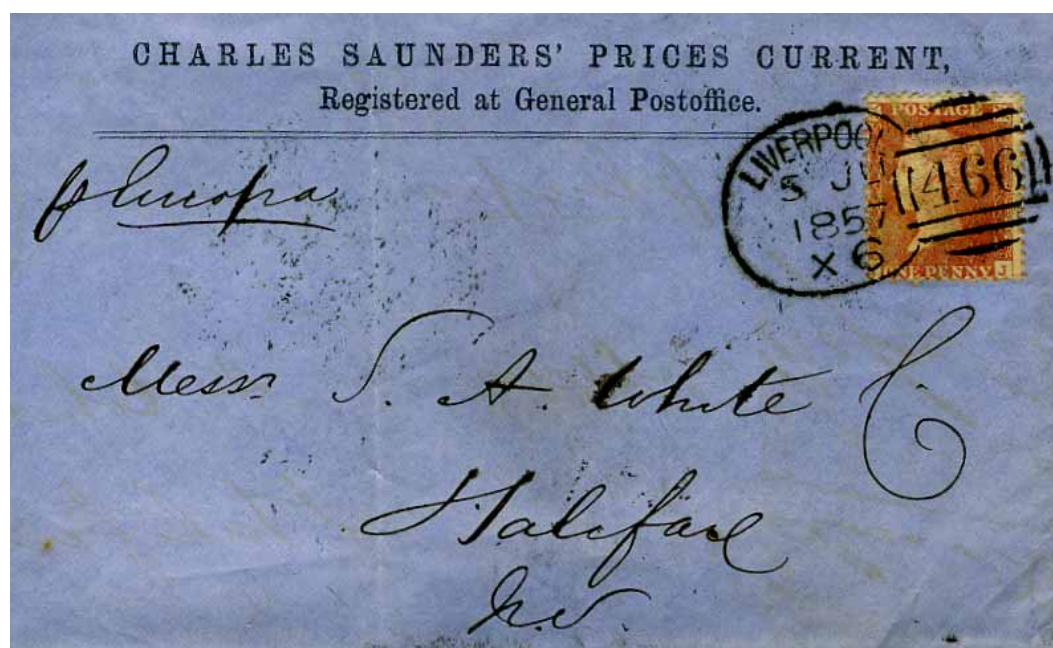 CHARLES SAUNDERS' PRICES CURRENT,
Registered at General Postoffice.
POSTAGE
LIVERPOOL
5 JU
1857
X 6
466
ONE PENNY J
p Europa
Messrs S. A. White C
Halifax
N.S.